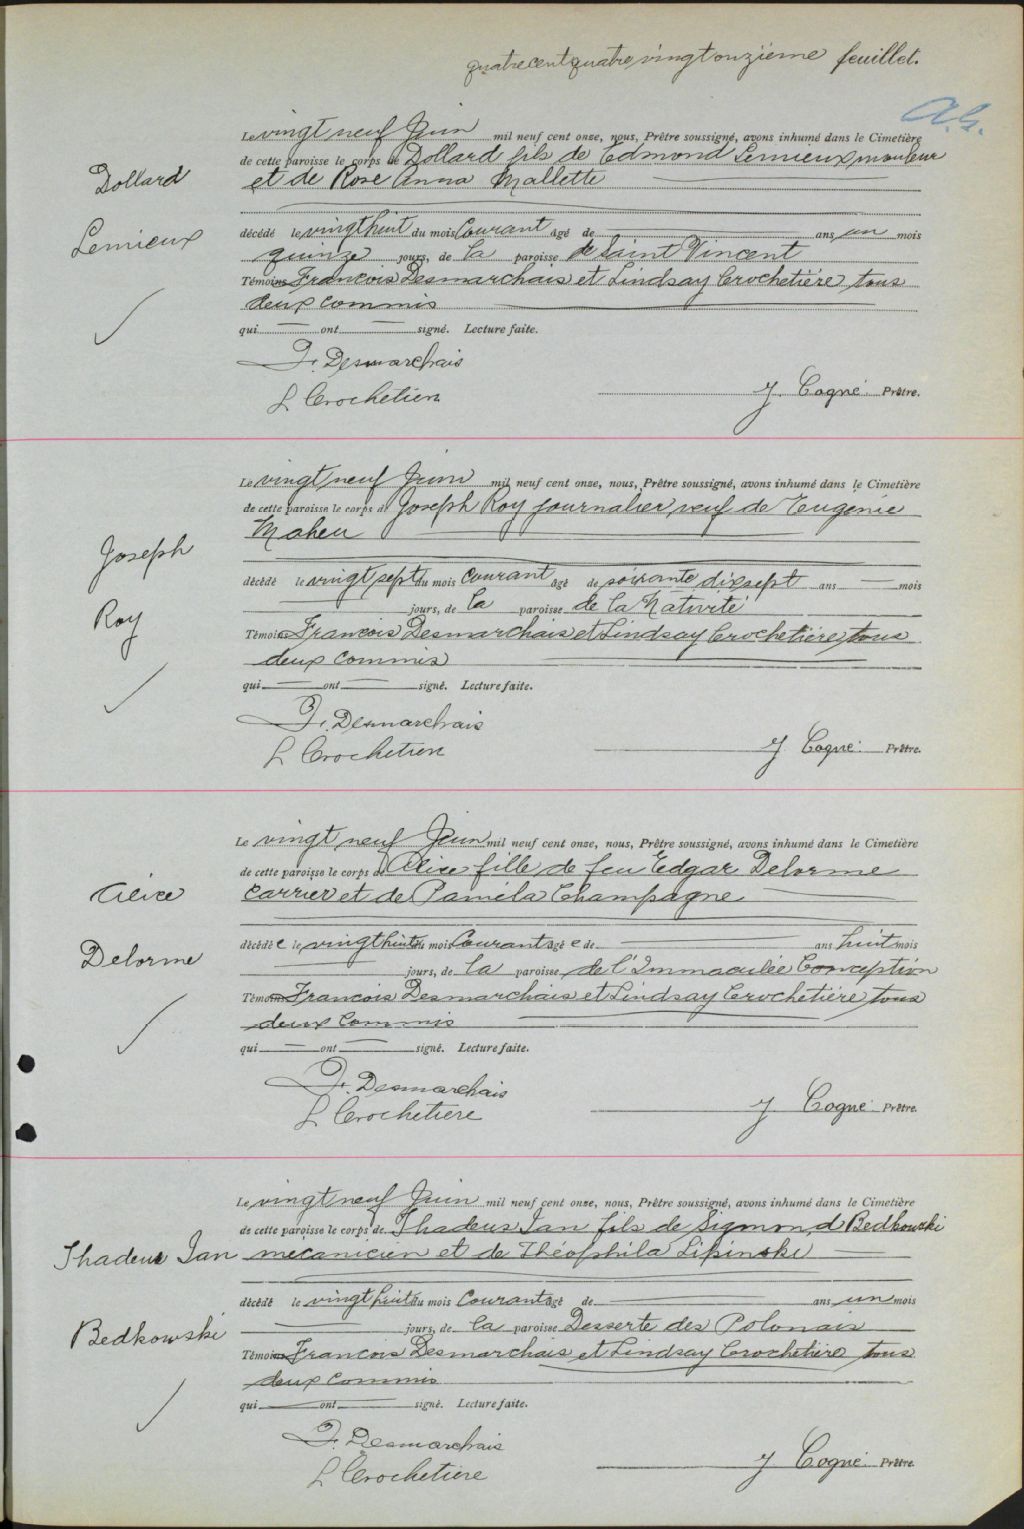 quatre cent quatre vingt onzième feuillet.
A.G.
Le vingt neuf Juin mil neuf cent onze, nous, Prêtre soussigné, avons inhumé dans le Cimetière
de cette paroisse le corps de Dollard fils de Edmond Lemieux mouleur
et de Rose Anna Mallette
Dollard
Lemieux
décédé le vingt huit du mois Courant âgé de ans un mois
quinze jours, de la paroisse de Saint Vincent
Témoins Francois Desmarchais et Lindsay Crochetière tous
deux commis
qui ont signé. Lecture faite.
F. Desmarchais
L Crochetière
J. Cogné. Prêtre.
Le vingt neuf Juin mil neuf cent onze, nous, Prêtre soussigné, avons inhumé dans le Cimetière
de cette paroisse le corps de Joseph Roy journalier veuf de Eugénie
Maheu
Joseph
Roy
décédé le vingt sept du mois Courant âgé de soixante dix sept ans mois
jours, de la paroisse de la Nativité
Témoins Francois Desmarchais et Lindsay Crochetière tous
deux commis
qui ont signé. Lecture faite.
F. Desmarchais
L Crochetière
J. Cogné. Prêtre.
Le vingt neuf Juin mil neuf cent onze, nous, Prêtre soussigné, avons inhumé dans le Cimetière
de cette paroisse le corps de Alice fille de feu Edgar Delorme
carrier et de Paméla Champagne
Alice
Delorme
décédé e le vingt huit du mois Courant âgé e de ans huit mois
jours, de la paroisse de l'Immaculée Conception
Témoins Francois Desmarchais et Lindsay Crochetière tous
deux commis
qui ont signé. Lecture faite.
F. Desmarchais
L Crochetiere
J. Cogné. Prêtre.
Le vingt neuf Juin mil neuf cent onze, nous, Prêtre soussigné, avons inhumé dans le Cimetière
de cette paroisse le corps de Thadeus Jan fils de Sigmond Bedkowski
Thadeus Jan mécanicien et de Théophila Lipinski
Bedkowski
décédé le vingt huit du mois Courant âgé de ans un mois
jours, de la paroisse Desserte des Polonais
Témoins Francois Desmarchais et Lindsay Crochetière tous
deux commis
qui ont signé. Lecture faite.
F. Desmarchais
L Crochetiere
J. Cogné. Prêtre.